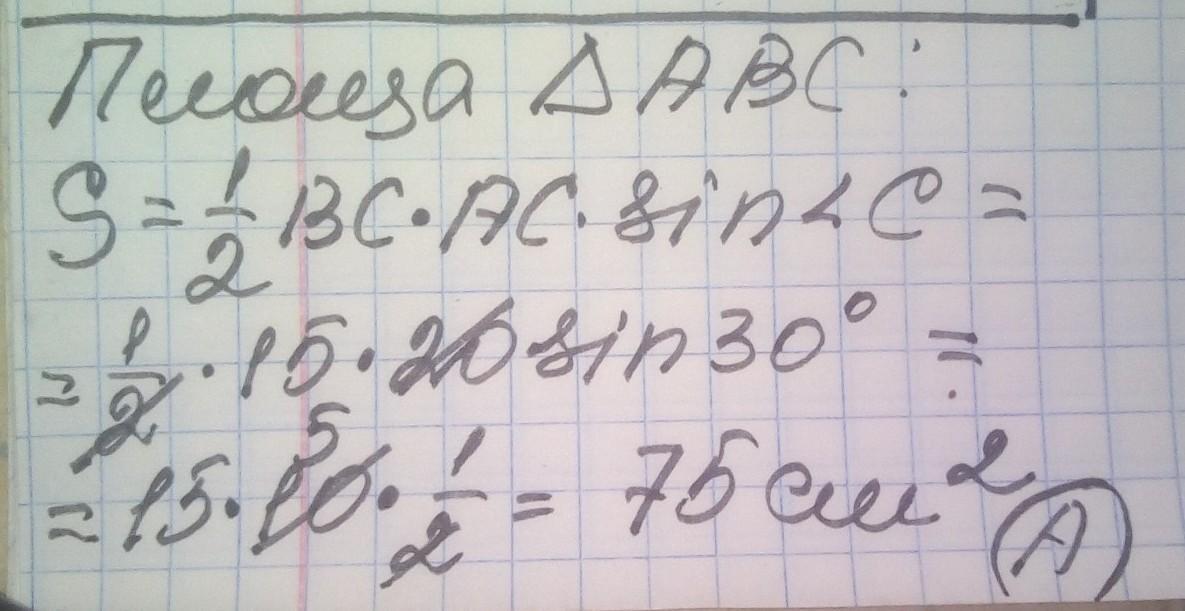 Площа △ABC:
S = 1/2 BC · AC · sin ∠C =
= 1/2 · 15 · 20 sin 30° =
= 15 · 10 5 · 1/2 = 75 см² (А)